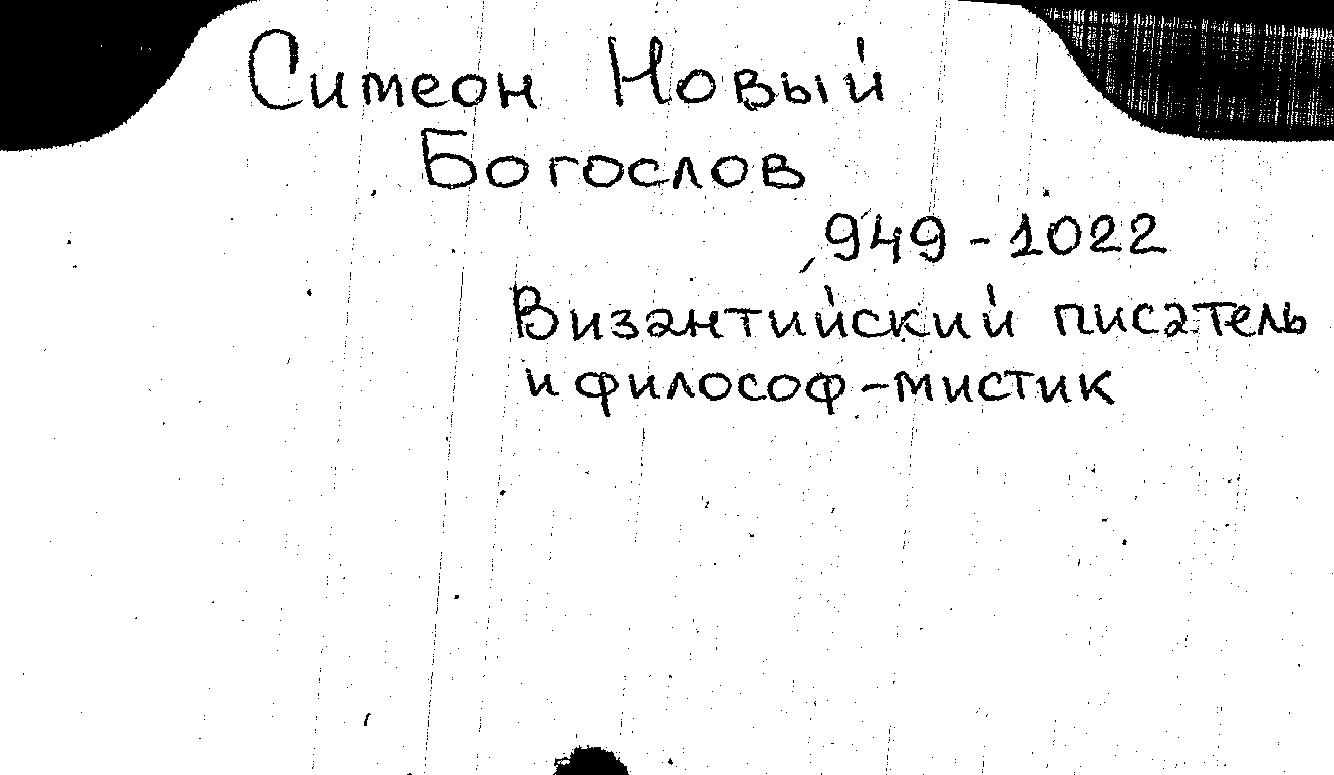 Симеон Новый
Богослов
949 - 1022
Византийский писатель
и философ-мистик